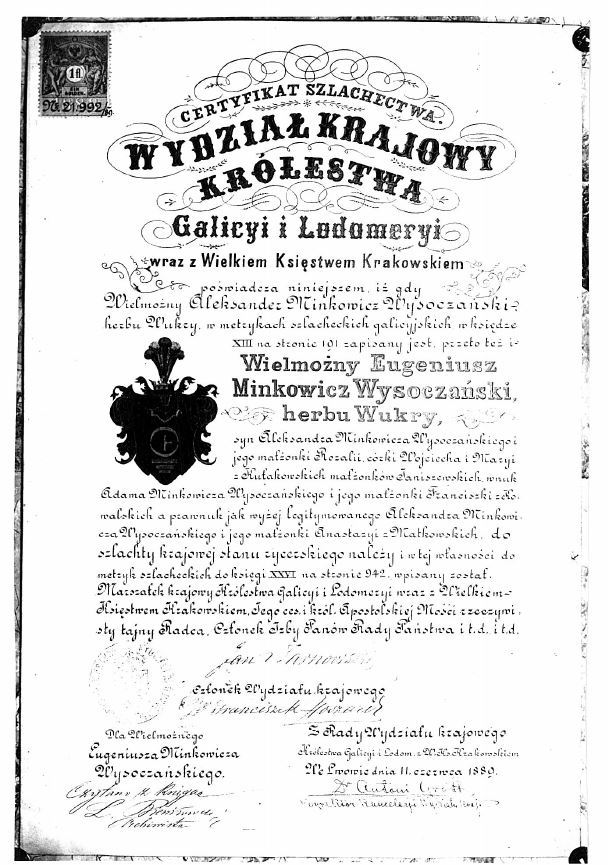 1 fl
EIN GULDEN
Nr. 21.992/89.
CERTYFIKAT SZLACHECTWA.
WYDZIAŁ KRAJOWY
KRÓLESTWA
Galicyi i Lodomeryi
wraz z Wielkiem Księstwem Krakowskiem
poświadcza niniejszem, iż gdy
Wielmożny Aleksander Minkowicz Wysoczański
herbu Wukry, w metrykach szlacheckich galicyjskich w księdze
XIII na stronie 191 zapisany jest, przeto też i
Wielmożny Eugeniusz
Minkowicz Wysoczański,
herbu Wukry,
syn Aleksandra Minkowicza Wysoczańskiego i
jego małżonki Rozalii, córki Wojciecha i Maryi
z Hułakowskich małżonków Janiszewskich, wnuk
Adama Minkowicza Wysoczańskiego i jego małżonki Franciszki z Ko-
walskich a prawnuk jak wyżej legitymowanego Aleksandra Minkowi-
cza Wysoczańskiego i jego małżonki Anastazyi z Matkowskich, do
szlachty krajowej stanu rycerskiego należy i w tej własności do
metryk szlacheckich do księgi XXVI na stronie 942. wpisany został.
Marszałek krajowy Królestwa Galicyi i Lodomeryi wraz z Wielkiem
Księstwem Krakowskiem, Jego ces. i król. Apostolskiej Mości rzeczywi-
sty tajny Radca, Członek Izby Panów Rady Państwa i t.d. i t.d.
Jan Tarnowski
Członek Wydziału krajowego
Franciszek
Dla Wielmożnego
Eugeniusza Minkowicza
Wysoczańskiego.
Z Rady Wydziału krajowego
Królestwa Galicyi i Lodom. z W. Ks. Krakowskiem
We Lwowie dnia 11. czerwca 1889.
Czytano z Księgą
Archiwista
Dr Antoni